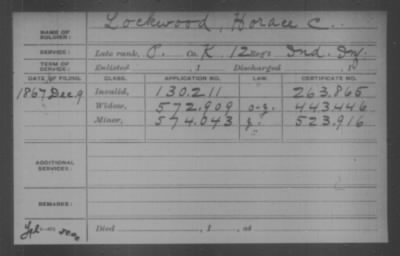 NAME OF SOLDIER: Lockwood, Horace C.
SERVICE: Late rank, P. Co. K, 12 Reg't Ind. Inf.
TERM OF SERVICE: Enlisted , 1 Discharged , 1
DATE OF FILING. CLASS. APPLICATION NO. LAW. CERTIFICATE NO.
1867 Dec. 9 Invalid, 130.211 263.865
Widow, 572.909 o-g. 443446
Minor, 574.043 g. 523.916
ADDITIONAL SERVICES:
REMARKS:
Died , 1 , at